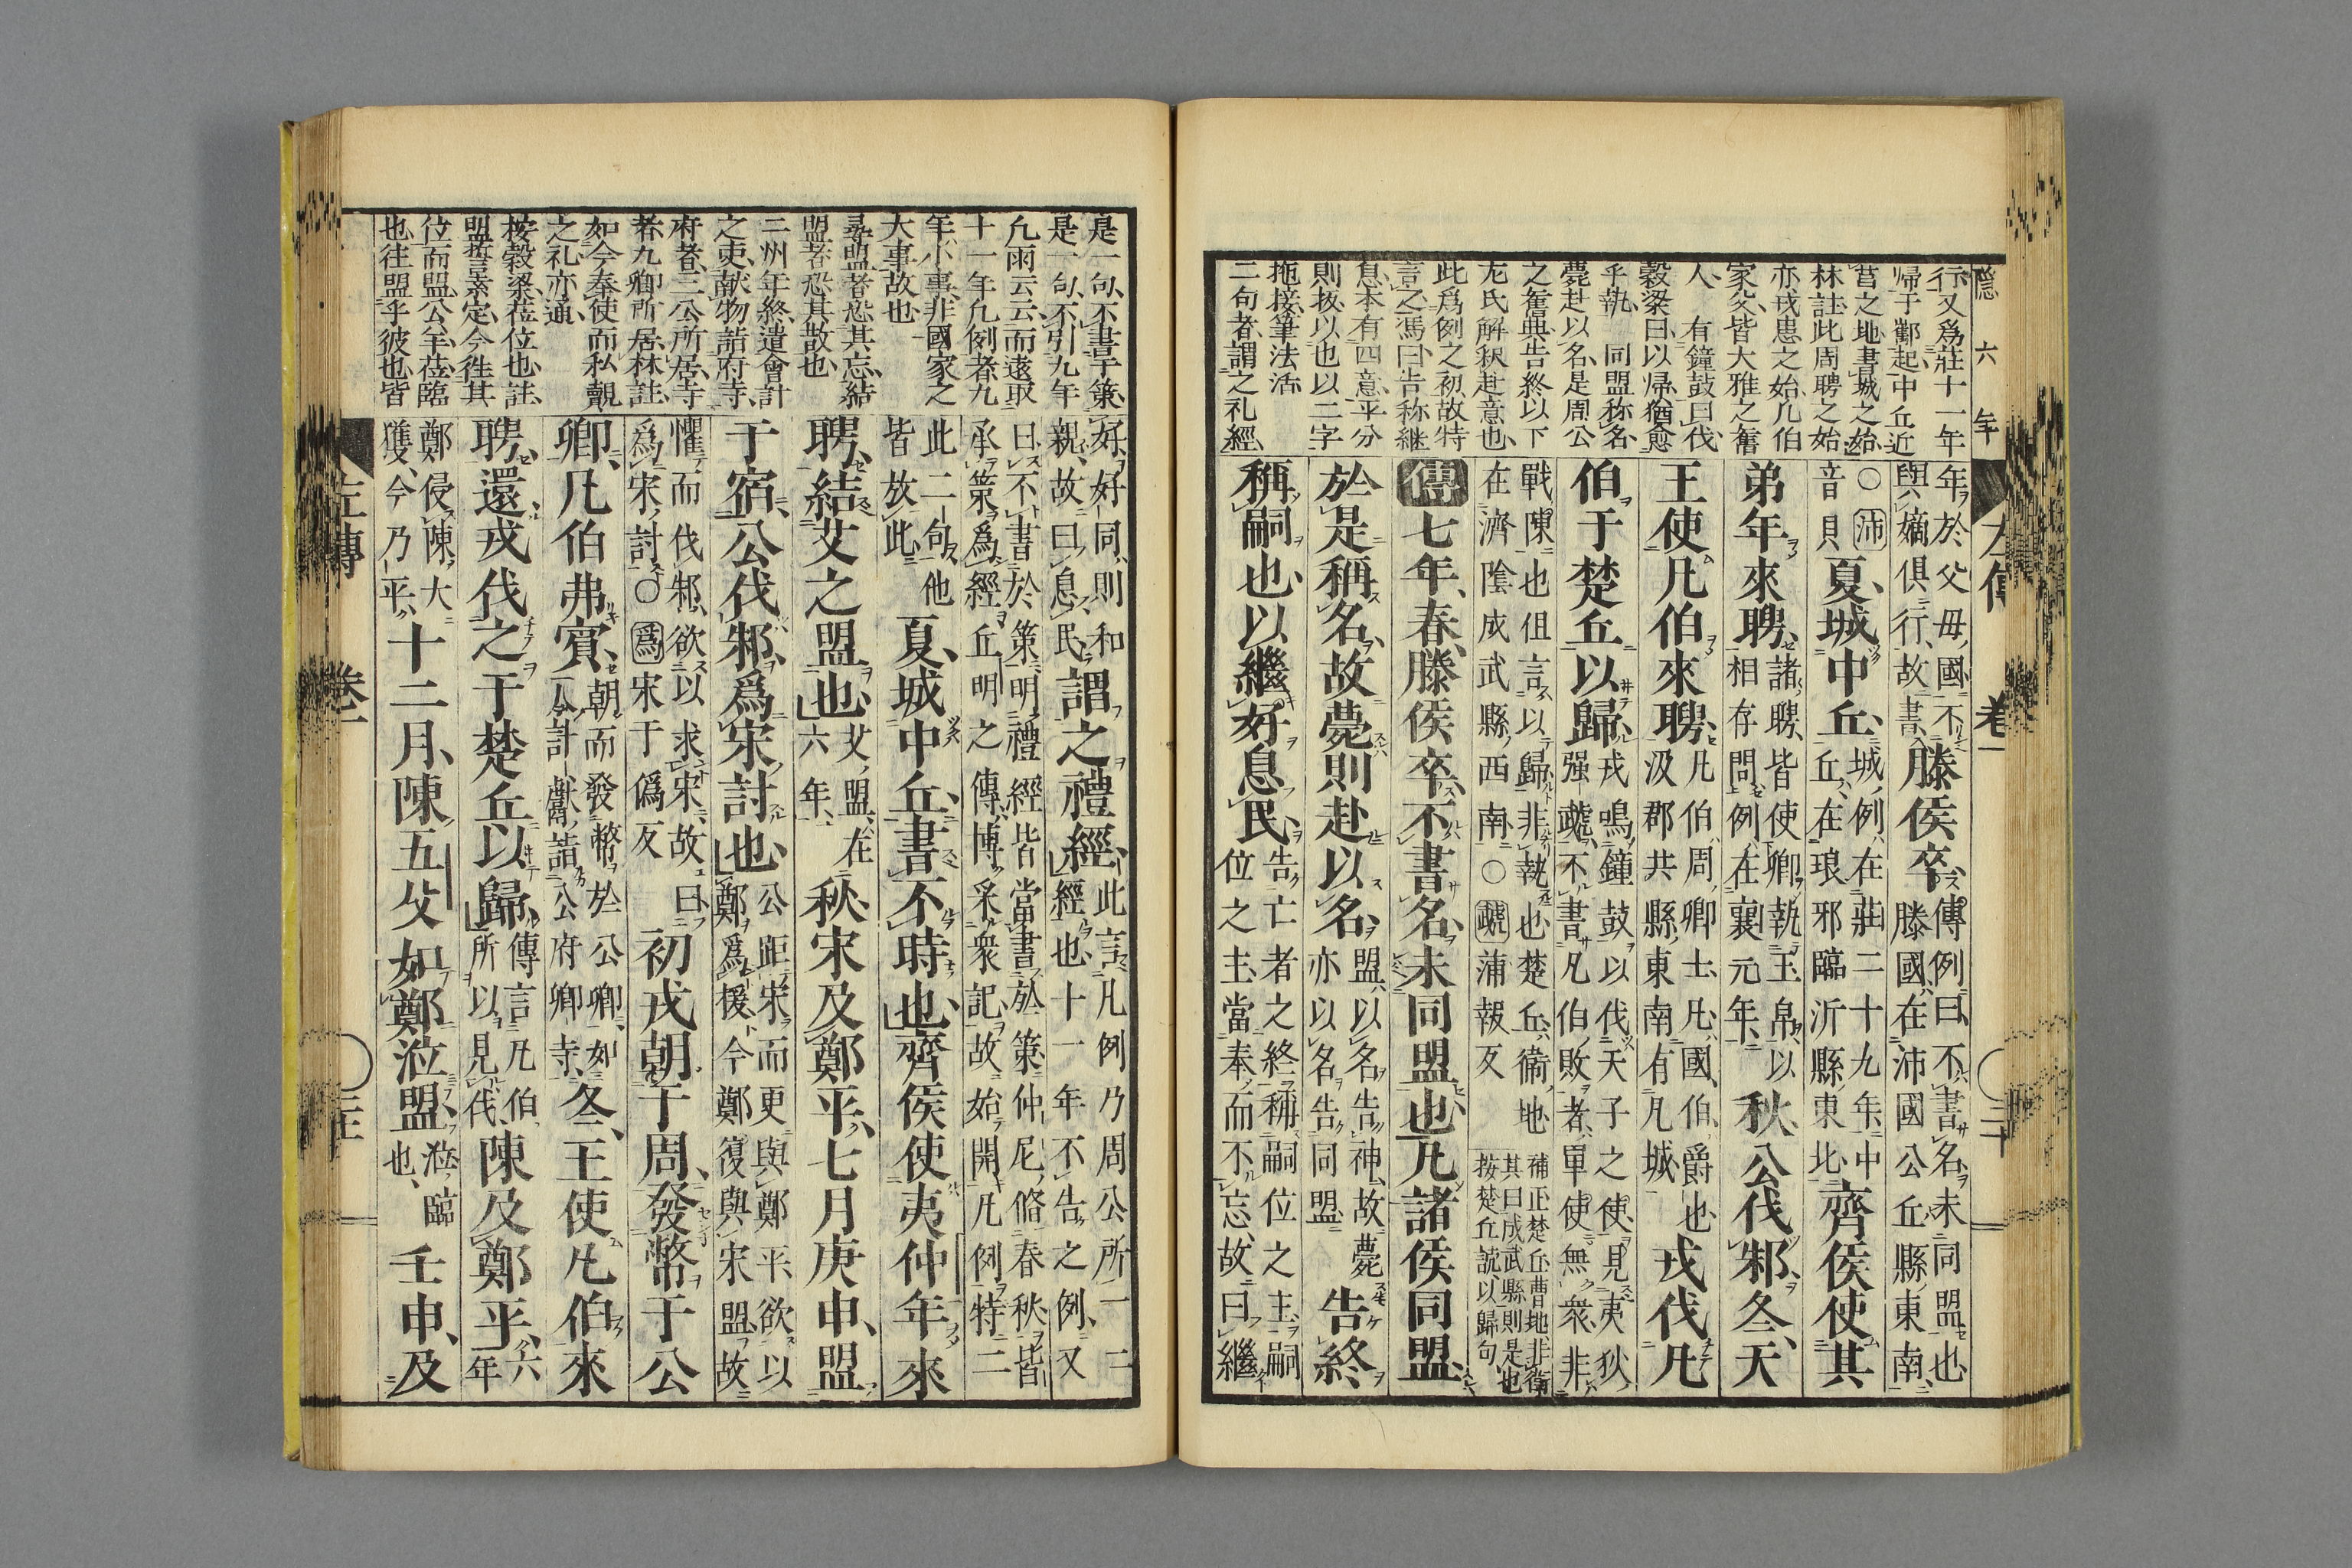 隱六年
行又爲莊十一年
帰于酅起中丘近
莒之地書城之始
林註此周聘之始
亦戎患之始凡伯
家父皆大雅之舊
人 有鐘鼓曰伐
穀梁曰以帰猶愈
乎執 同盟称名
薨赴以名是周公
之舊典告終以下
尨氏解釈赴意也
此爲例之初故特
言之馮曰告称継
息本有四意平分
則抜以也以二字
拖接筆法活
二句者謂之礼經
左傳 卷一 二十
年於父母國不與嫡俱行故書滕侯卒傳例曰不書名未同盟也滕國在沛國公丘縣東南
○沛音貝夏城中丘城例在莊二十九年中丘在琅邪臨沂縣東北齊侯使其
弟年來聘諸聘皆使卿執玉帛以相存問例在襄元年秋公伐邾冬天
王使凡伯來聘凡伯周卿士凡國伯爵也汲郡共縣東南有凡城戎伐凡
伯于楚丘以歸戎鳴鐘鼓以伐天子之使見夷狄強虣不書凡伯敗者單使無衆非
戰陳也但言以歸非執也楚丘衞地在濟陰成武縣西南○虣蒲報反補正楚丘曹地非衞其曰成武縣則是也按楚丘読以歸句
傳七年春滕侯卒不書名未同盟也凡諸侯同盟
於是稱名故薨則赴以名盟以名告神故薨亦以名告同盟告終
稱嗣也以繼好息民告亡者之終稱嗣位之主嗣位之主當奉而不忘故曰繼
是一句不書于策
是一句不引九年
凡雨云云而遠取
十一年凡例者九
年小事非國家之
大事故也
尋盟者恐其忘結
盟者恐其散也
二州年終遣會計
之吏献物詣府寺
府者三公所居寺
者九卿所居林註
如今奉使而私覿
之礼亦通
按穀梁莅位也註
盟誓素定今往其
位而盟公羊莅臨
也往盟乎彼也皆
好好同則和親故曰息民謂之禮經此言凡例乃周公所一二經也十一年不告之例又
曰不書於策明禮經皆當書於策仲尼脩春秋皆承策爲經丘明之傳博采衆記故始開凡例特二
此二句他皆放此夏城中丘書不時也齊侯使夷仲年來
聘結艾之盟也艾盟在六年秋宋及鄭平七月庚申盟
于宿公伐邾爲宋討也公距宋而更與鄭平欲以鄭爲援今鄭復與宋盟故
懼而伐邾欲以求宋故曰爲宋討○爲宋于僞反初戎朝于周發幣于公
卿凡伯弗賓朝而發幣於公卿如今計獻詣公府卿寺冬王使凡伯來
聘還戎伐之于楚丘以歸傳言凡伯所以見伐陳及鄭平六年
鄭侵陳大獲今乃平十二月陳五父如鄭涖盟涖臨也壬申及
左傳 卷一